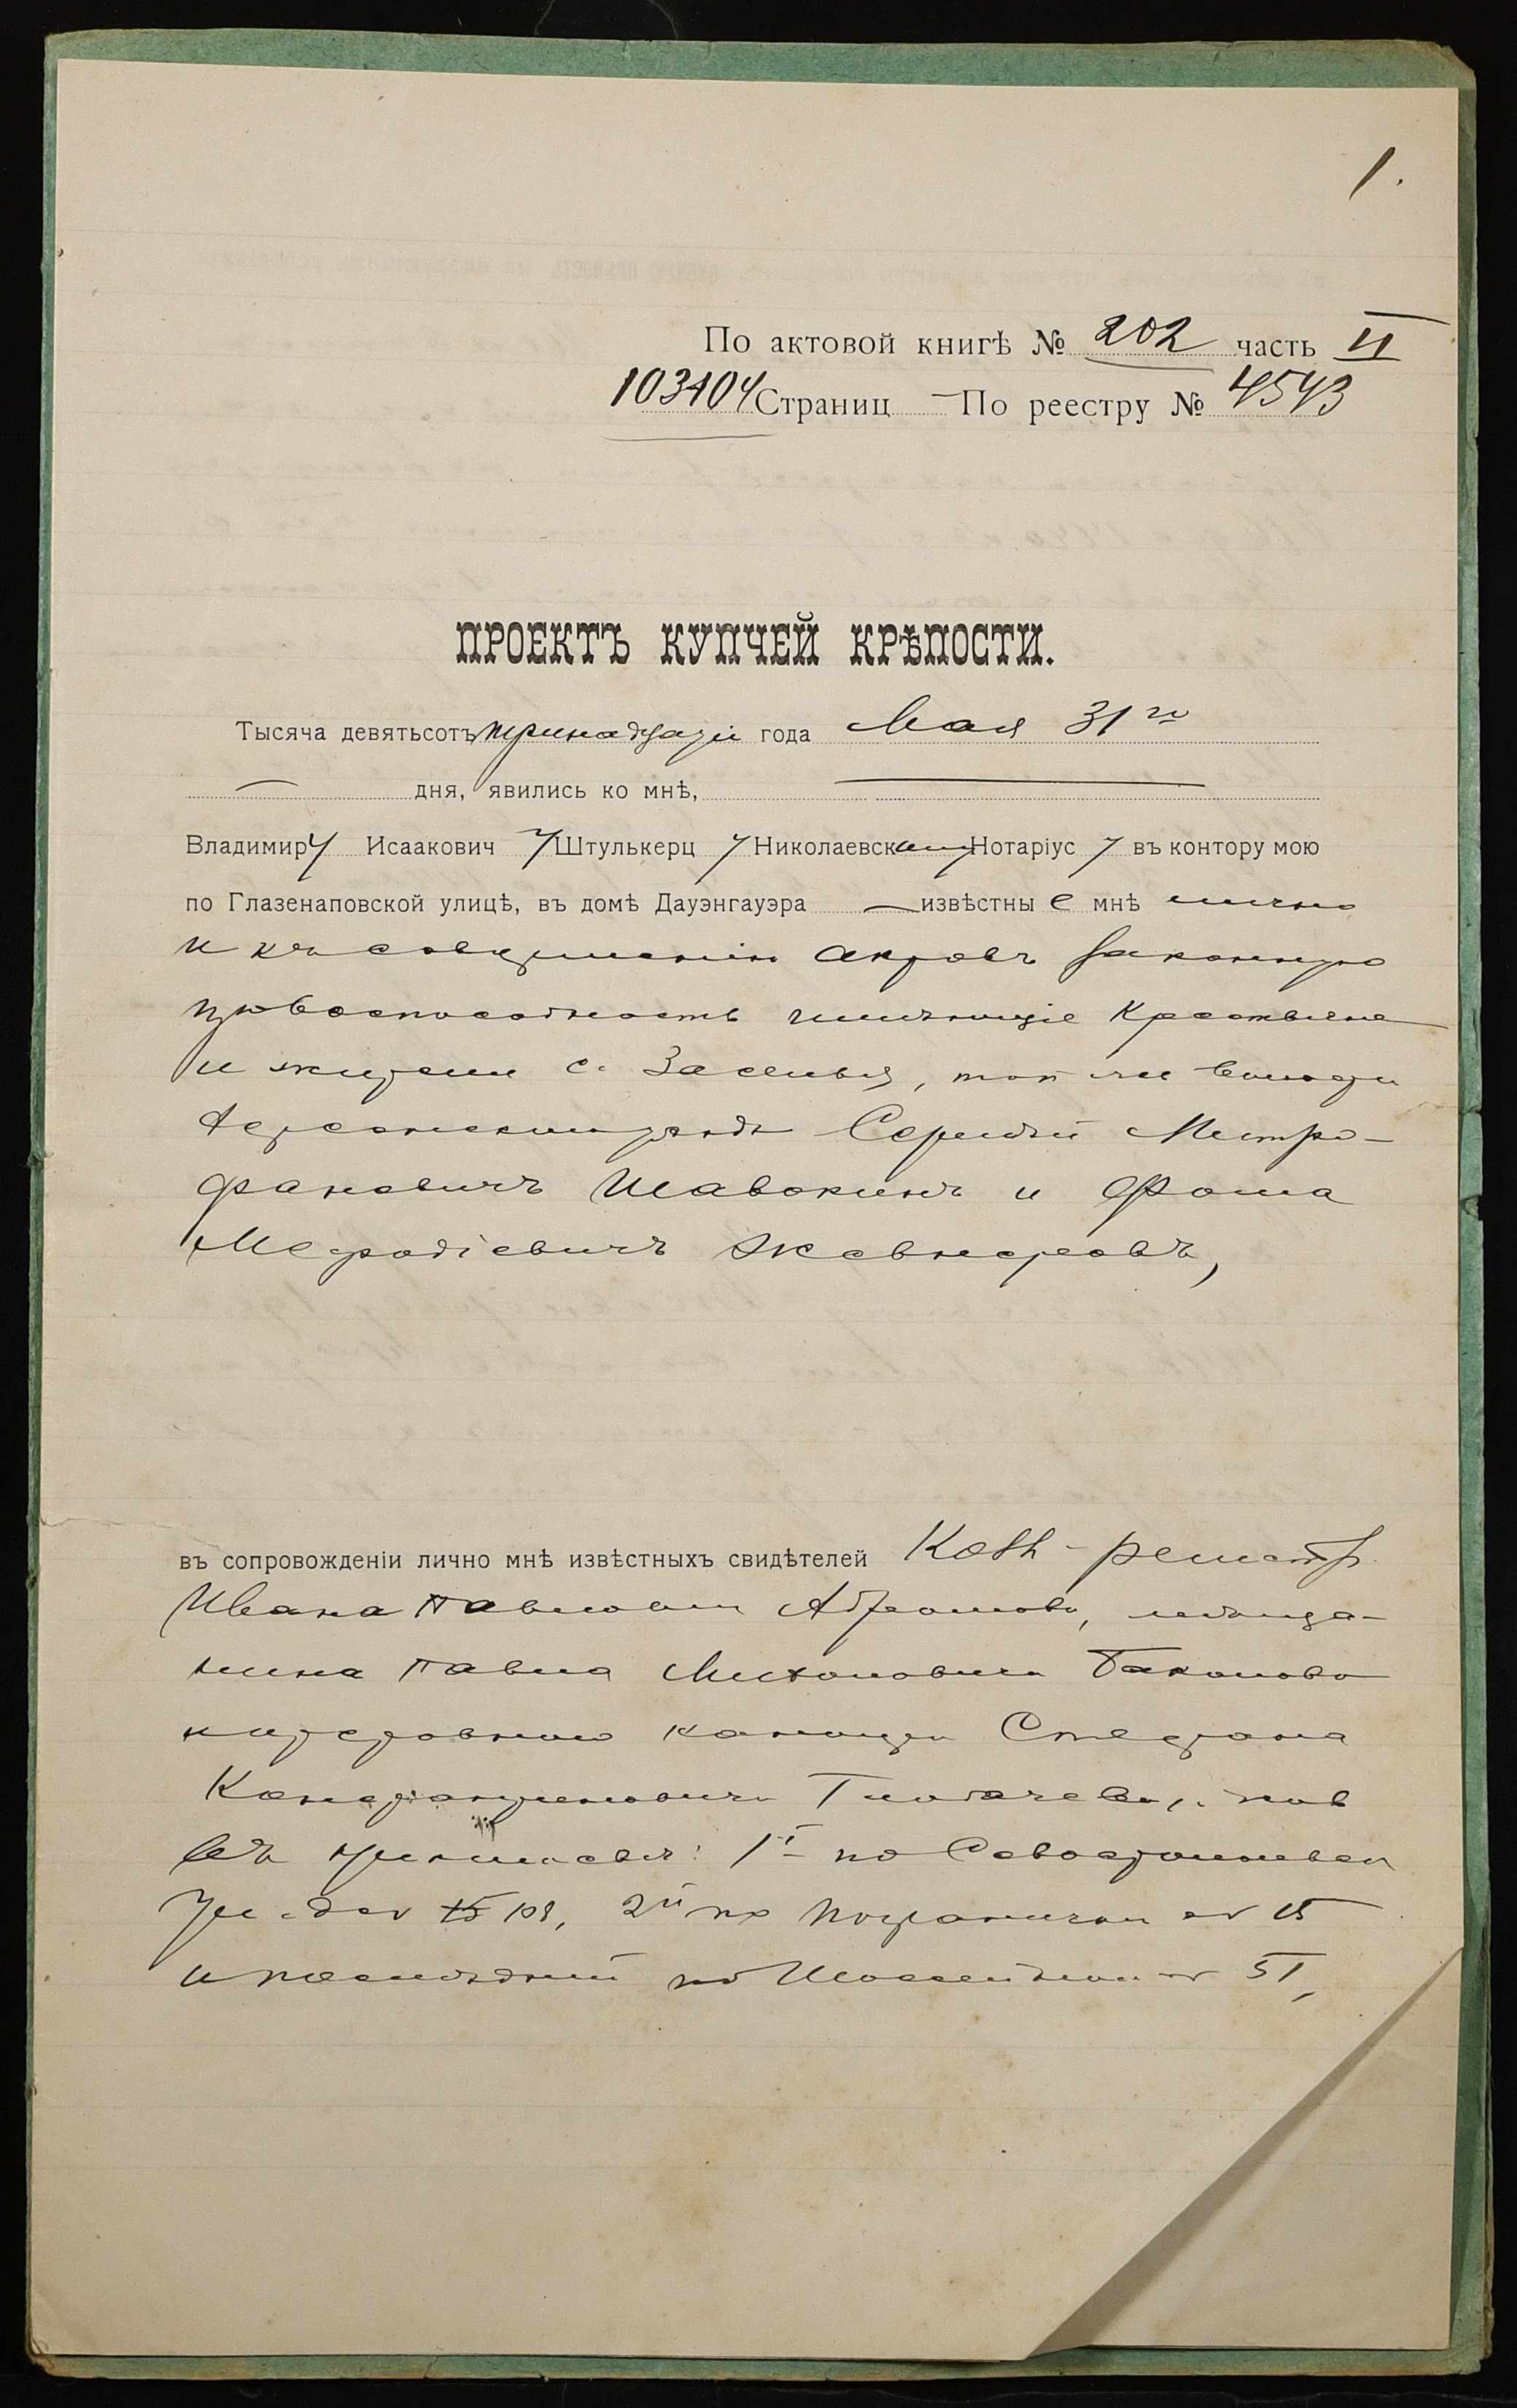 1.
По актовой книгѣ № 202 часть II
103-104 Страниц — По реестру № 4543
ПРОЕКТЪ КУПЧЕЙ КРѢПОСТИ.
Тысяча девятьсотъ тринадцаті года Мая 31го
— дня, явились ко мнѣ, —
Владимиру Исаакович у Штулькерц у Николаевскому Нотаріус у въ контору мою
по Глазенаповской улицѣ, въ домѣ Дауэнгауэра — извѣстны е мнѣ лично
и къ совершенію актовъ законную
правоспособность имѣющіе крестьяне
и жители с. Заселья, той же волости
Херсонскаго уѣзда Сергѣй Митро-
фановичъ Шавокинъ и Фома
Мефодіевичъ Жевнеровъ,
въ сопровожденіи лично мнѣ извѣстныхъ свидѣтелей Колл-регистр.
Ивана Павловича Абрамова, мѣща-
нина Павла
и Степана
Ткачева,
въ Николаевѣ: 1й по
108, 2й по Пограничной № 15
и послѣдній по № 51,